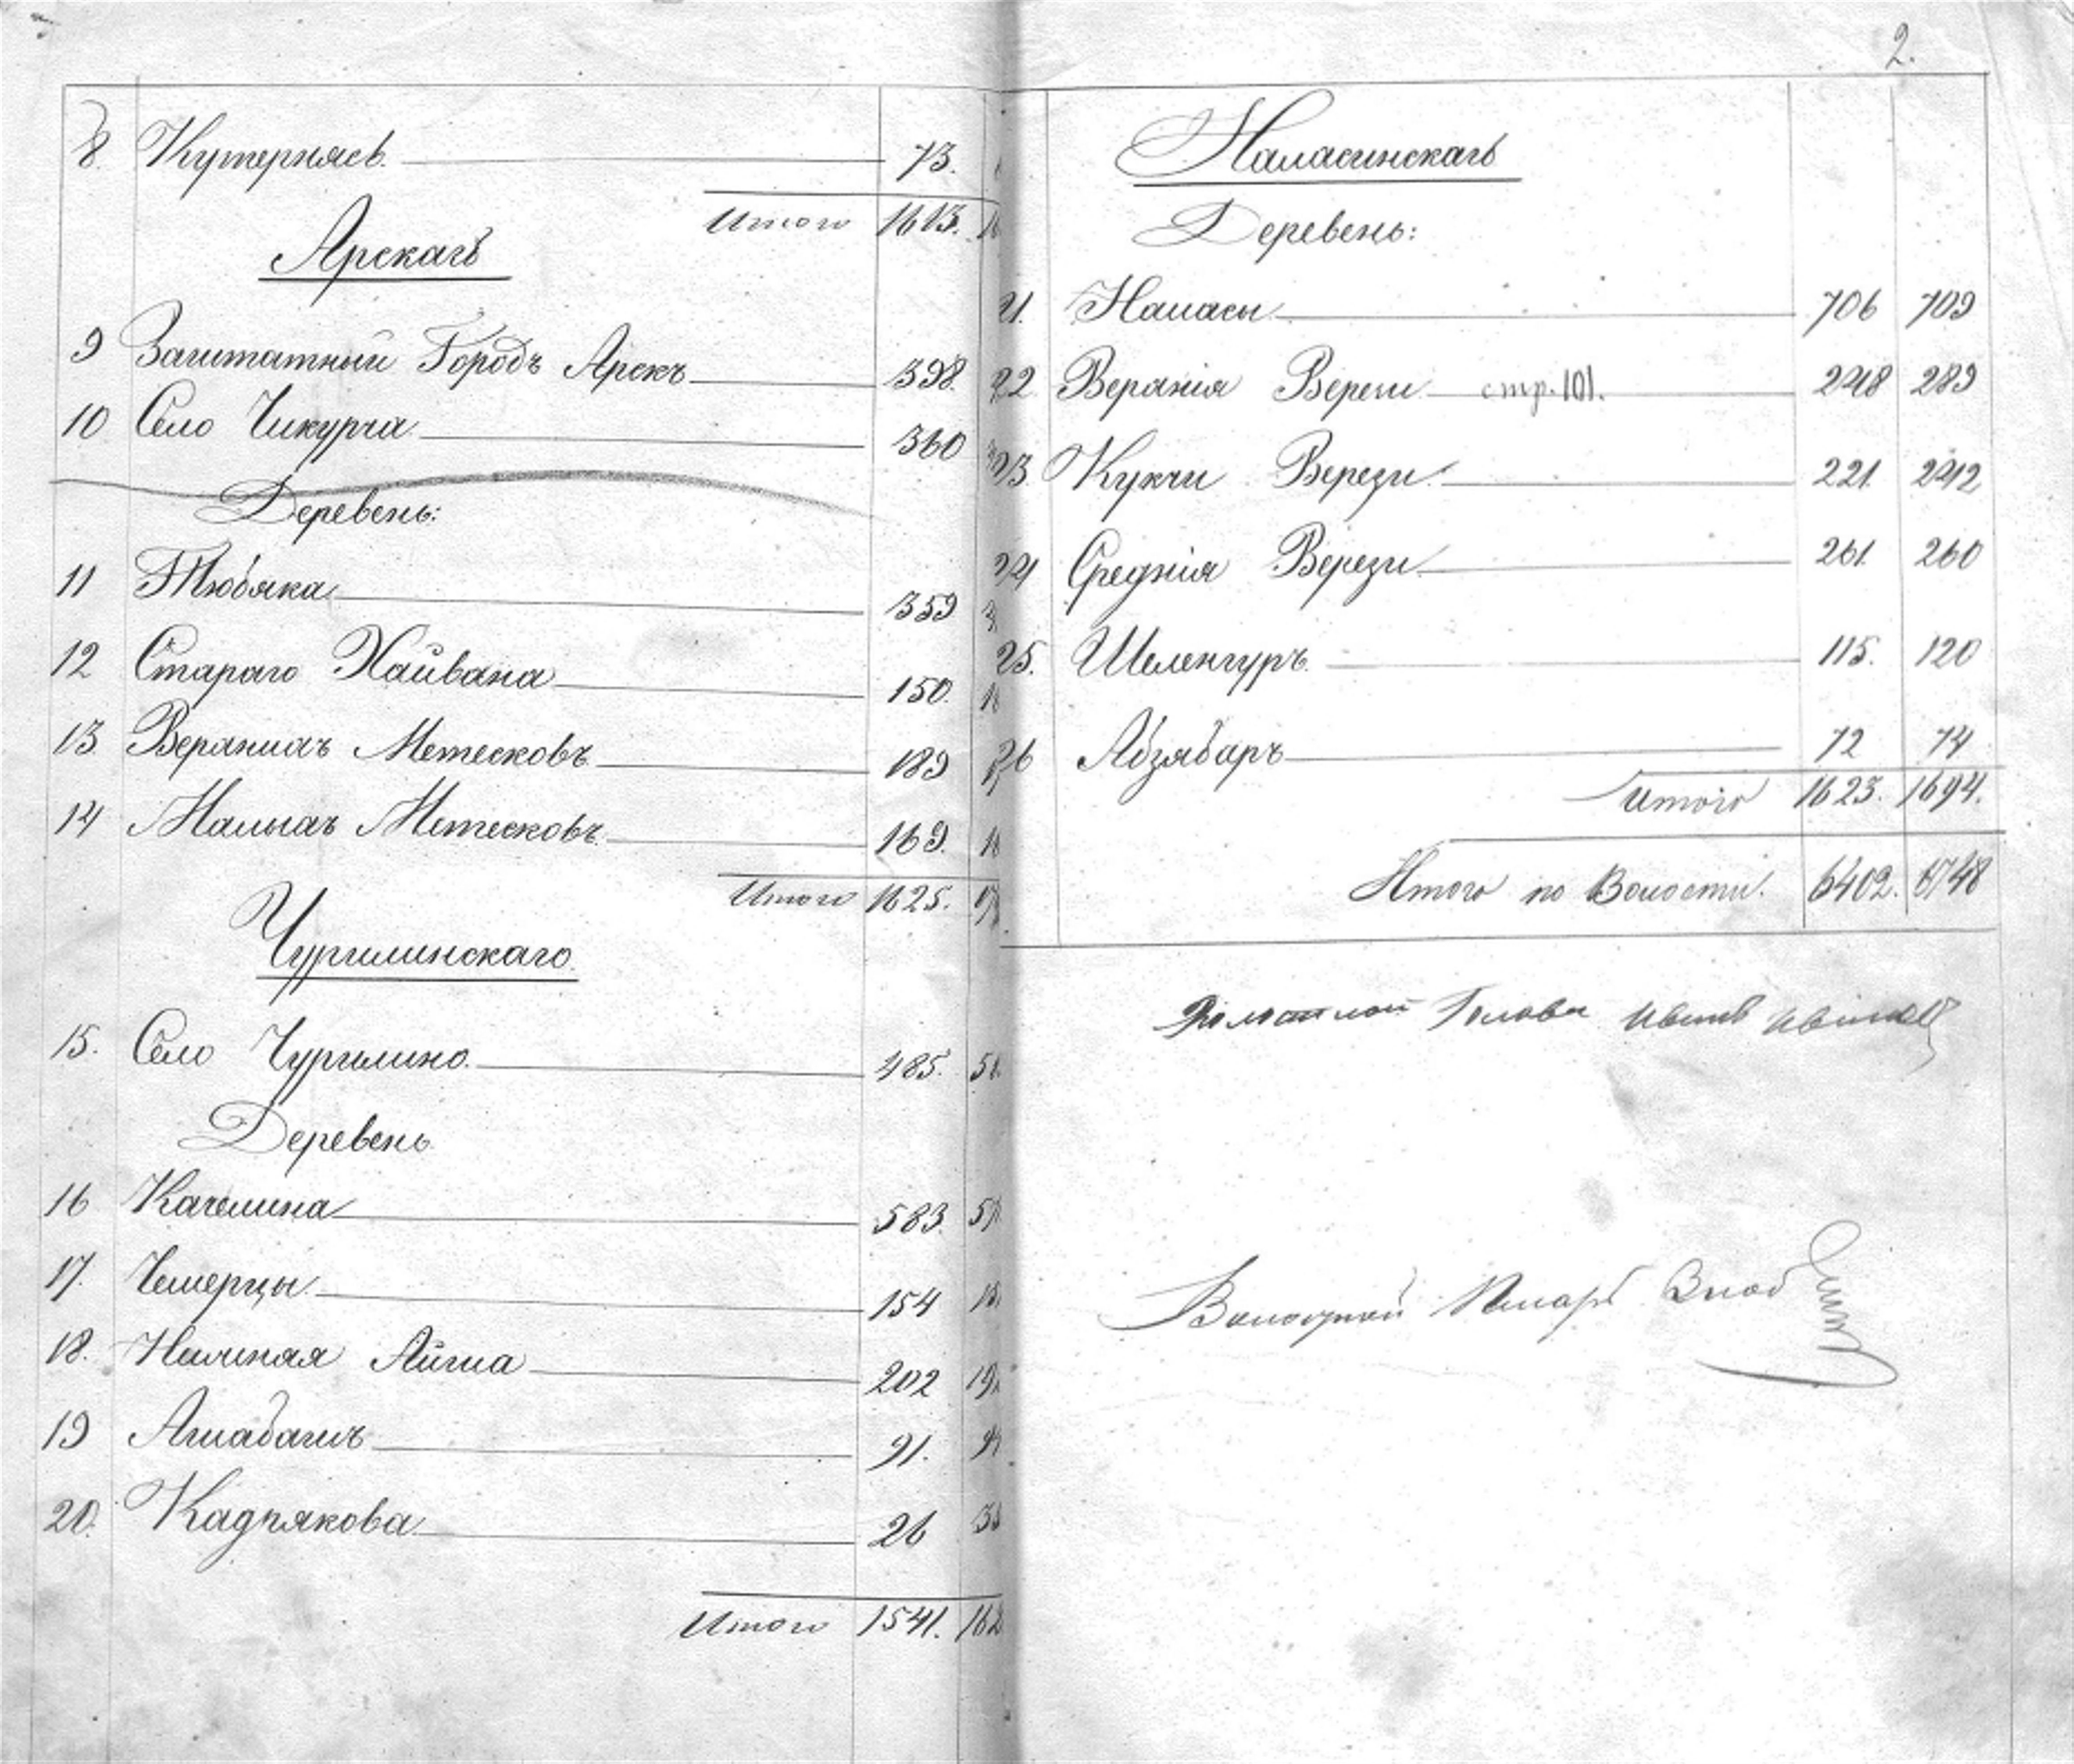 8. Кутернясь. 73.
Итого 1613.
Арскаго
9 Заштатный Городъ Арскъ 398.
10 Село Чикурча 360
Деревень:
11 Тюбяка 359
12 Стараго Хайвана 150.
13 Верхнихъ Метесковъ 189
14 Малыхъ Метесковъ 169.
Итого 1625.
Чурилинскаго
15. Село Чурилино. 485.
Деревень
16 Качелина 583.
17. Чемерцы. 154
18. Нижняя Айша 202
19 Ашабашъ 91.
20. Кадрякова 26
Итого 1541.
2.
Наласинскаго
Деревень:
21. Наласы 706 709
22 Верхнія Верези стр. 101. 248 289
23. Кукчи Верези 221. 242
24 Среднія Верези 261. 260
25. Шеленгуръ. 115. 120
26 Абзябаръ 72 74
Итого 1623. 1694.
Итого по Волости. 6402. 6748
Голова Иванъ
Волостной Писарь